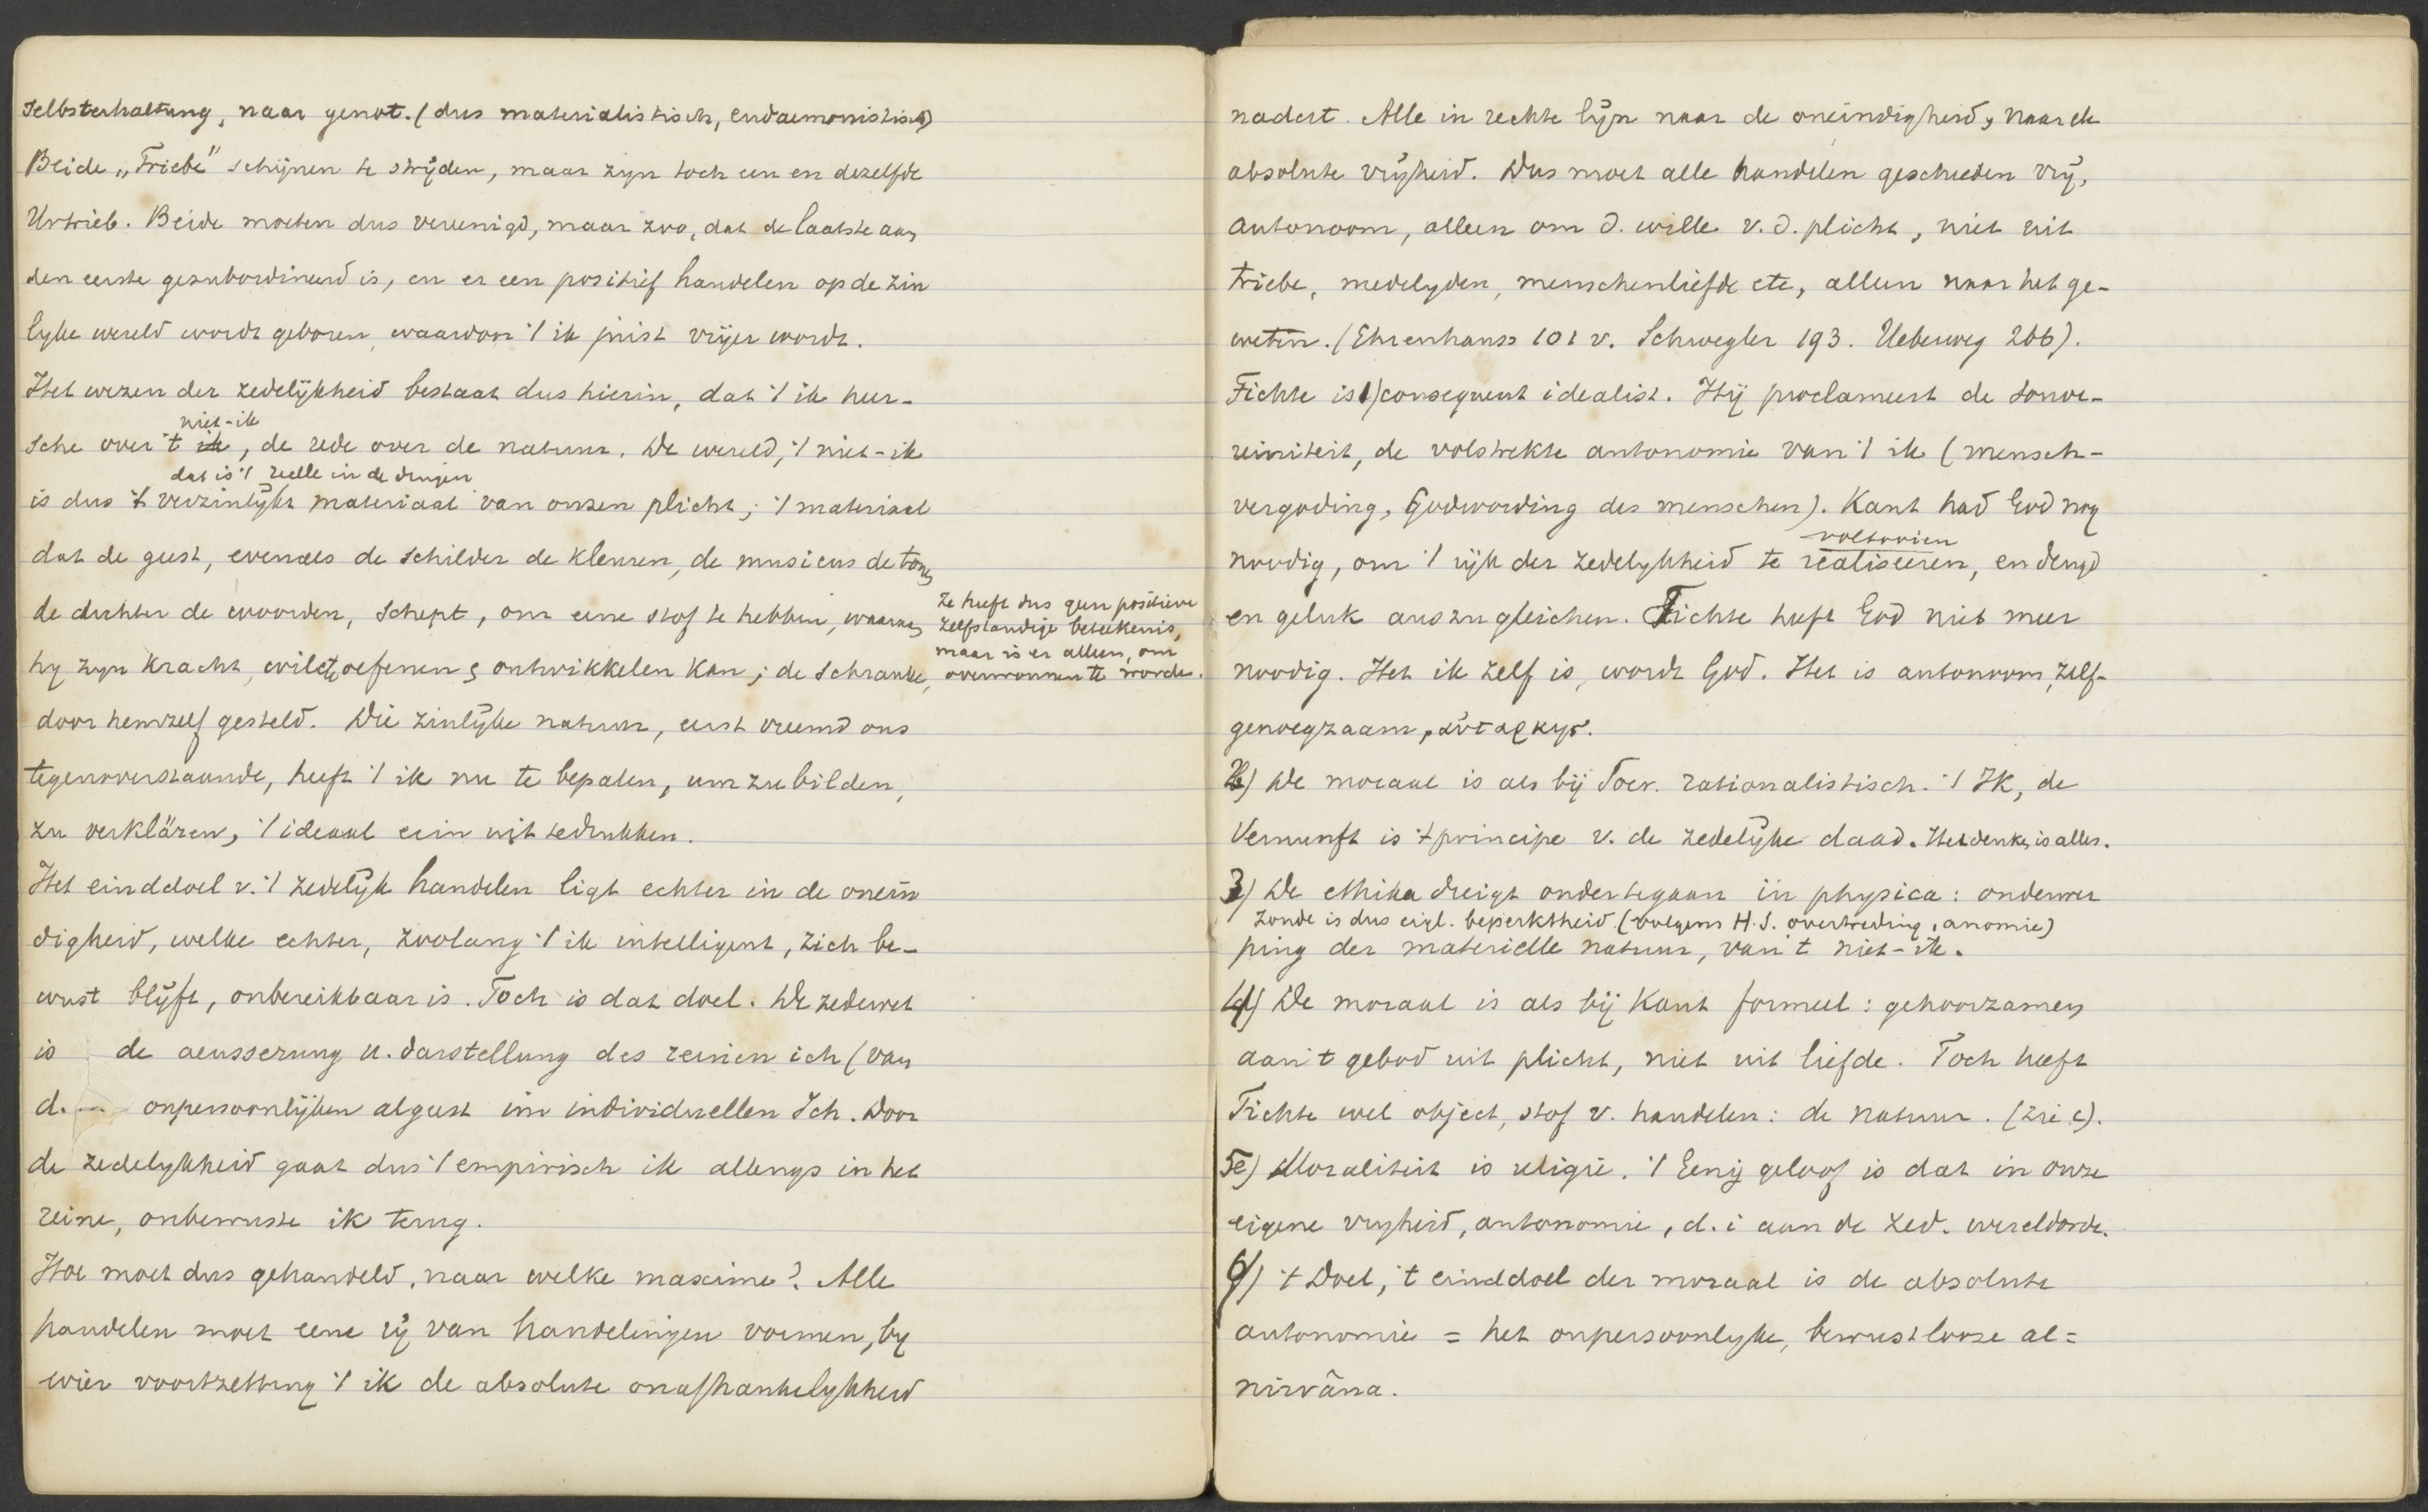 Selbsterhaltung, naar genot. (dus materialistisch, eudaemonistisch)
Beide „Triebe" schijnen te strijden, maar zyn toch een en dezelfde
Urtrieb. Beide moeten dus vereenigd, maar zoo, dat de laatste aan
den eerste gesubordineerd is, en er een positief handelen op de zin
lyke wereld wordt geboren, waardoor 't ik juist vrijer wordt.
Het wezen der zedelijkheid bestaat dus hierin, dat 't ik heer-
niet-ik
sche over 't ik, de rede over de natuur. De wereld, 't niet-ik
dat is 't reëlle in de dingen
is dus 't verzinlijkt materiaal van onzen plicht; 't materiaal
dat de geest, evenals de schilder de kleuren, de musicus de tonen
de dichter de woorden, schept, om eene stof te hebben, waaraan
hy zyn kracht, wil etc oefenen & ontwikkelen kan; de Schranke,
Ze heeft dus geen positieve
zelfstandige beteekenis,
maar is er alleen, om
overwonnen te worden.
door hemzelf gesteld. Die zinlijke natuur, eerst vreemd ons
tegenoverstaande, heeft 't ik nu te bepalen, umzubilden,
zu verklären, 't ideaal erin uit te drukken.
Het einddoel v. 't zedelijk handelen ligt echter in de onein
digheid, welke echter, zoolang 't ik intelligent, zich be-
wust blijft, onbereikbaar is. Toch is dat doel. De zedewet
is de aeusserung u. darstellung des reinen ich (van
d. onpersoonlijken algeest im individuellen Ich. Door
de zedelykheid gaat dus 't empirisch ik allengs in het
reine, onbewuste ik terug.
Hoe moet dus gehandeld, naar welke maxime? Alle
handelen moet eene rij van handelingen vormen, by
wier voortzetting 't ik de absolute onafhankelykheid
nadert. Alle in rechte lijn naar de oneindigheid, naar de
absolute vrijheid. Dus moet alle handelen geschieden vrij,
autonoom, alleen om d. wille v. d. plicht, niet uit
triebe, medelyden, menschenliefde etc, alleen naar het ge-
weten. (Ehrenhauss 101 v. Schwegler 193. Ueberweg 266).
Fichte is 1) consequent idealist. Hij proclameert de souve-
reiniteit, de volstrekte autonomie van 't ik (mensch-
vergoding, Godwording des menschen). Kant had God nog
voltooien
noodig, om 't rijk der zedelykheid te realiseeren, en deugd
en geluk auszugleichen. Fichte heeft God niet meer
noodig. Het ik zelf is, wordt God. Het is autonoom, zelf-
genoegzaam, αὐταρκης.
2) De moraal is als bij Socr. rationalistisch. 't Ik, de
Vernunft is 't principe v. de zedelijke daad. Het denken is alles.
3) De ethika dreigt onder te gaan in physica: onderwer
Zonde is dus eigl. beperktheid. (volgens H.S. overtreding, anomie)
ping der materielle natuur, van 't niet-ik.
4) De moraal is als bij Kant formeel: gehoorzamen
aan 't gebod uit plicht, niet uit liefde. Toch heeft
Fichte wel object, stof v. handelen: de natuur. (zie c).
5e) Moraliteit is religie. 't Eenig geloof is dat in onze
eigene vryheid, autonomie, d. i aan de zed. wereldorde.
6) 't Doel, 't einddoel der moraal is de absolute
autonomie = het onpersoonlyke, bewustlooze al =
nirvâna.